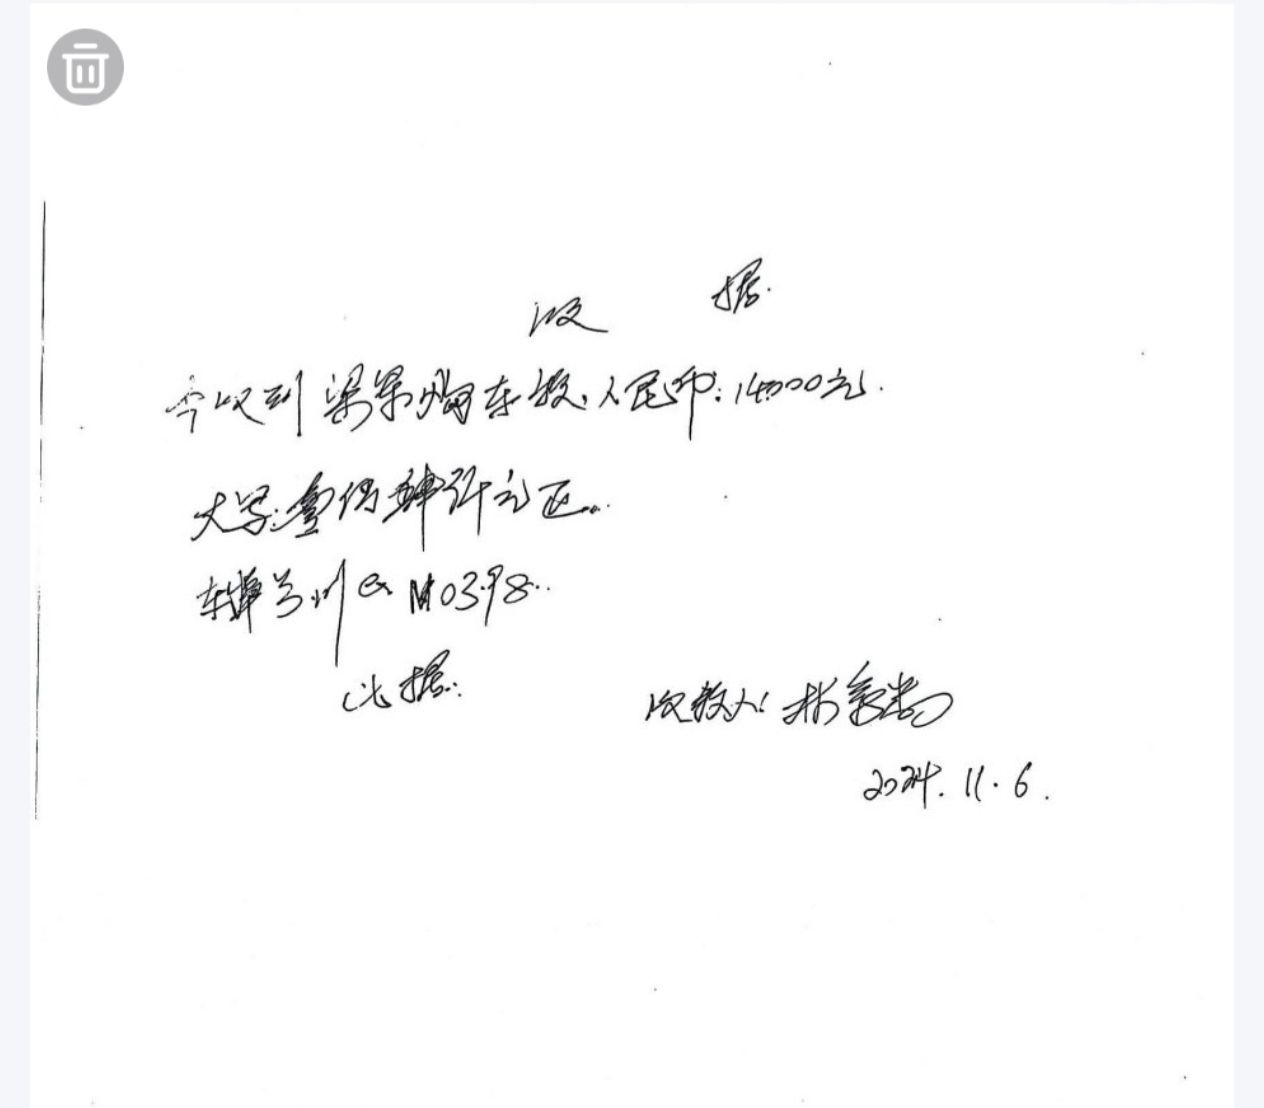 收 据.
今收到梁军购车款.人民币:14000元.
大写:壹万肆仟元正..
车牌号川 M0398..
此据.
收款人:林
2024.11.6.